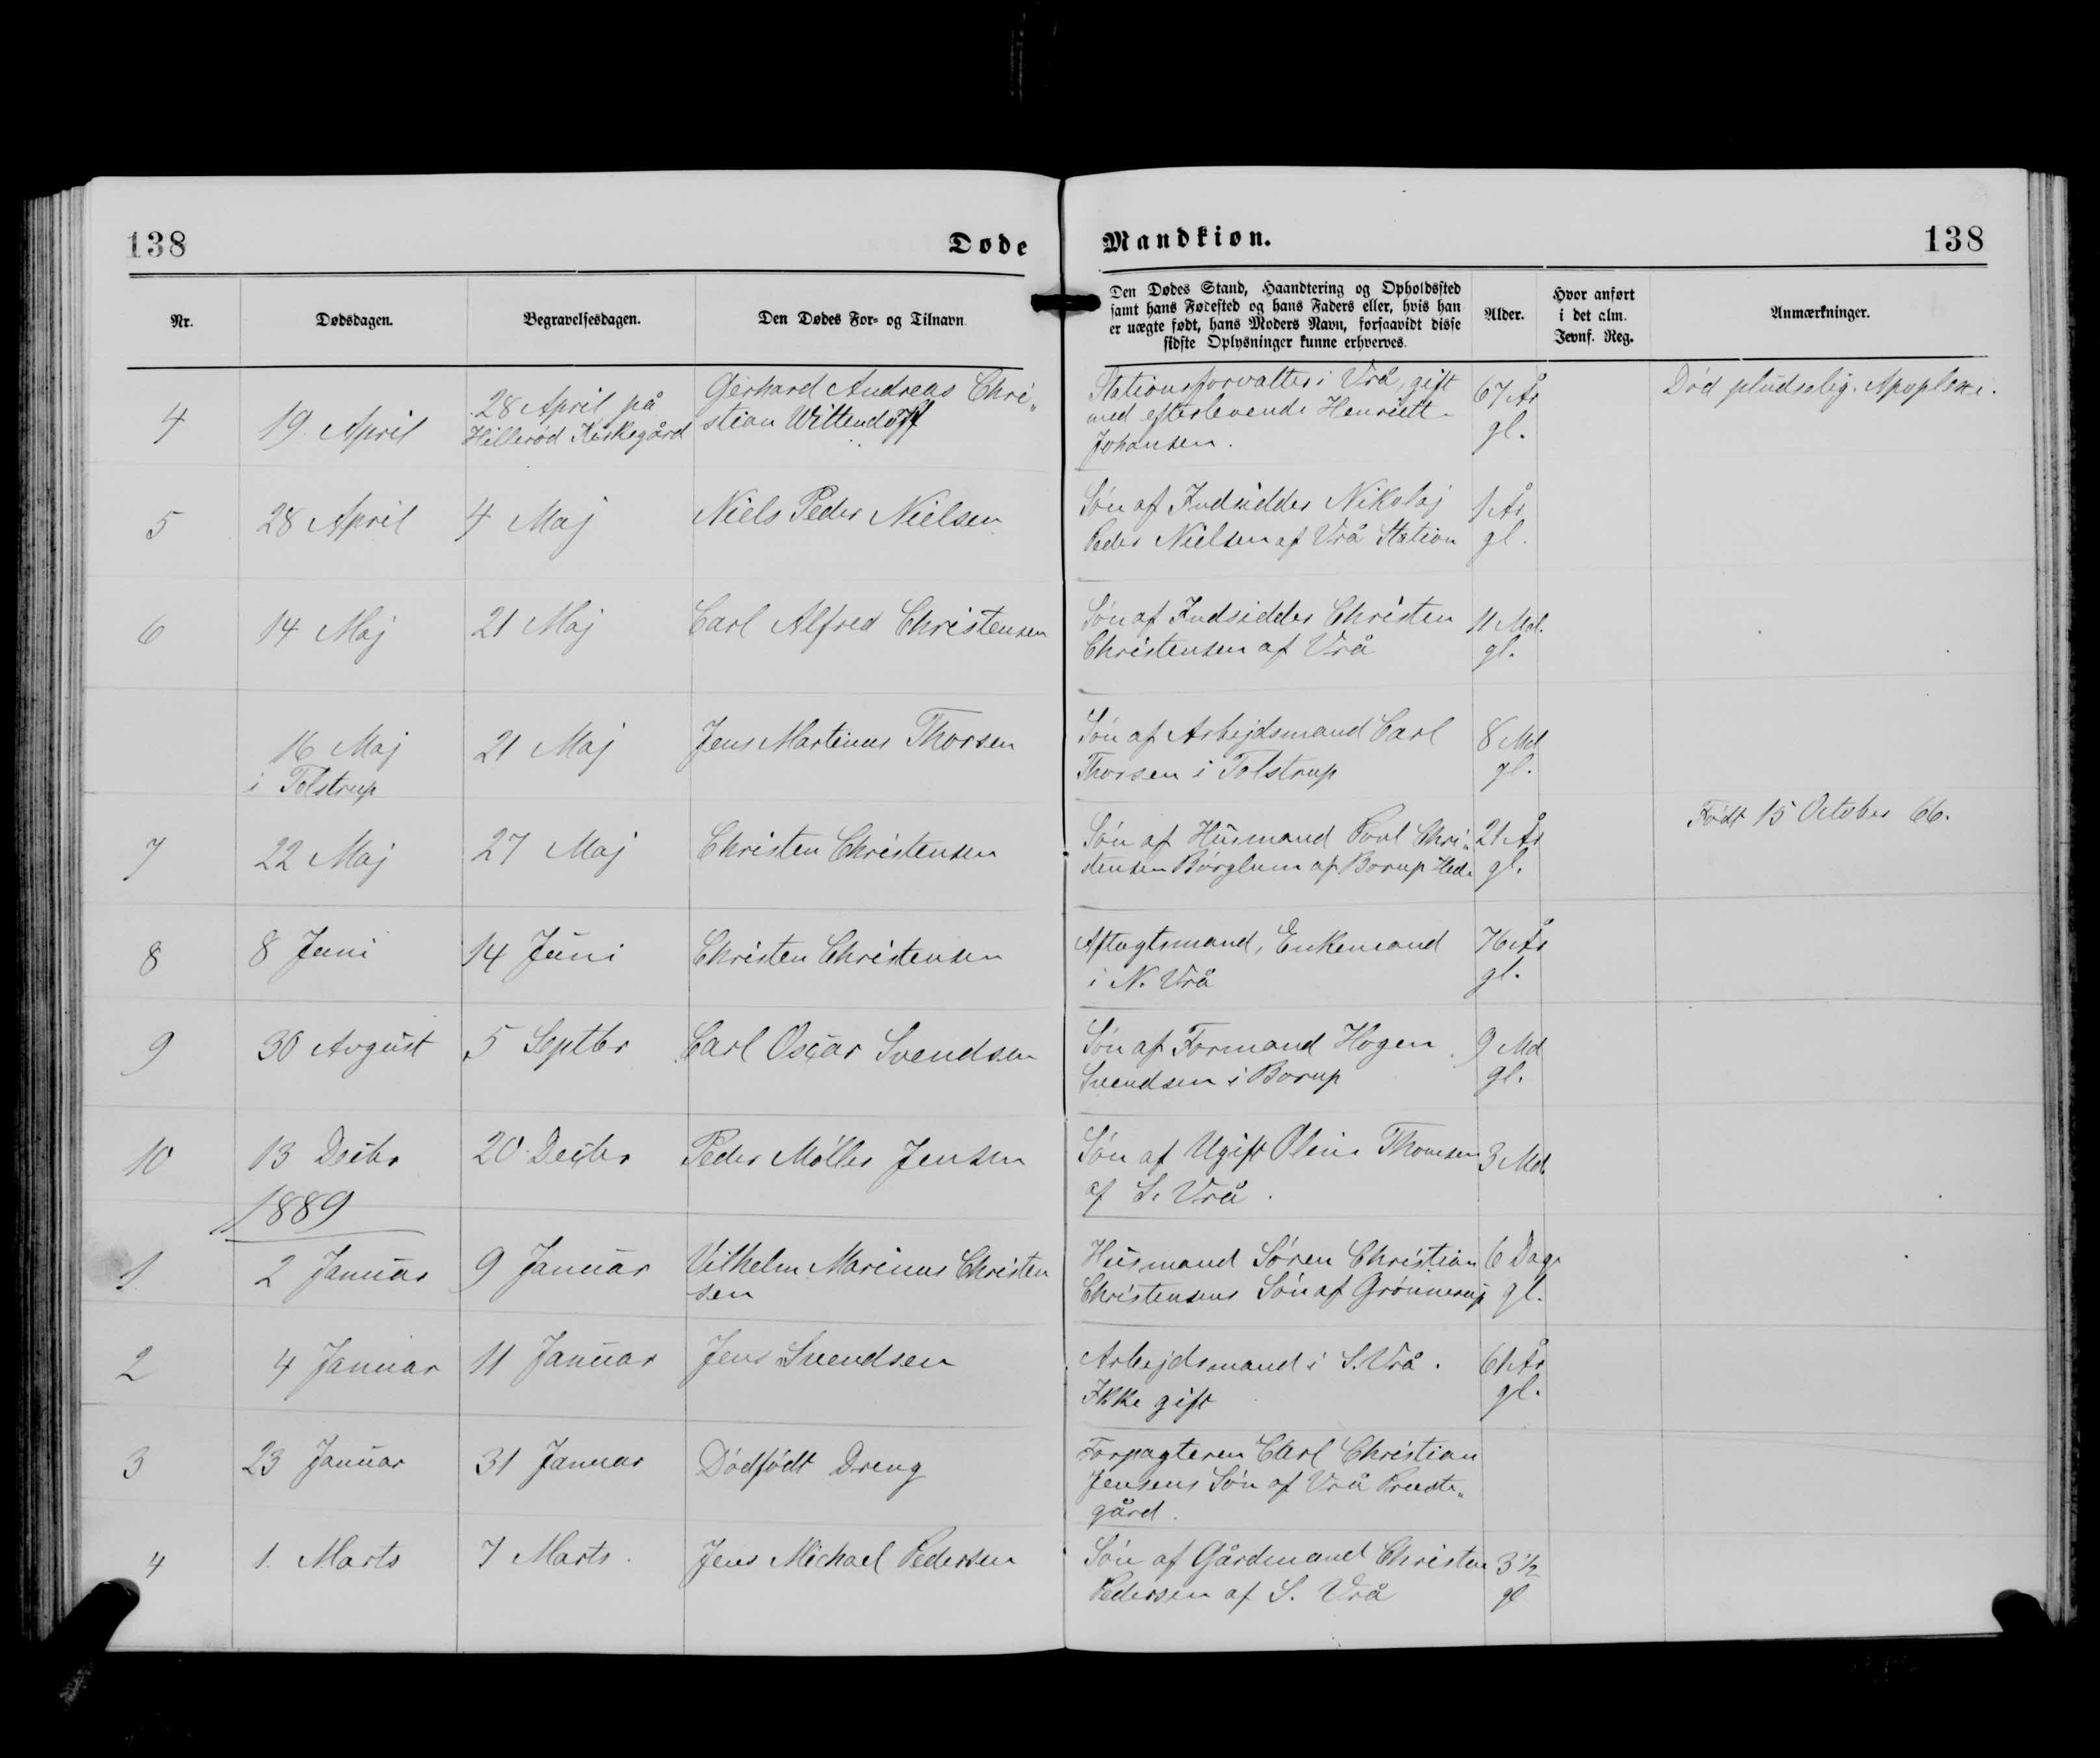 138
Døde
Mandkiøn.
138
Nr.
Dødsdagen.
Begravelsesdagen.
Den Dødes For- og Tilnavn.
Den Dødes Stand, Haandtering og Opholdssted
samt hans Fødested og hans Faders eller, hvis han
er uægte født, hans Moders Navn, forsaavidt disse
sidste Oplysninger kunne erhverves.
Alder.
Hvor anført
i det alm.
Jevnf. Reg.
Anmærkninger.
4
19 April
28 April på
Hillerød Kirkegård
Gerhard Andreas Chri-
stian Wittendorff
Stationsforvalter i Vrå, gift
med efterlevende Henriett
Johansen.
67 År
gl.
Død pludselig. Apoplexi.
5
28 April
4 Maj
Niels Peder Nielsen
Søn af Indsidder Nikolaj
Peder Nielsen af Vrå Station
1 År
gl.
6
14 Maj
21 Maj
Carl Alfred Christensen
Søn af Indsidder Christen
Christensen af Vrå
11 Md.
gl.
16 Maj
i Tolstrup
21 Maj
Jens Martinus Thorsen
Søn af Arbejdsmand Carl
Thorsen i Tolstrup
8 Md
gl.
7
22 Maj
27 Maj
Christen Christensen
Søn af Husmand Povl Chri-
stensen Børglum af Borup Hede
21 År
gl.
Født 15 October 66.
8
8 Juni
14 Juni
Christen Christensen
Aftægtsmand, Enkemand
i N. Vrå
76 År
gl.
9
30 Avgust
5 Septbr
Carl Oscar Svendsen
Søn af Formand Hogen
Svendsen i Borup
9 Md
gl.
10
13 Decbr
20 Decbr
Peder Møller Jensen
Søn af Ugift Oline Thomsen
af S. Vrå.
3 Md.
1889
1
2 Januar
9 Januar
Vilhelm Marinus Christen
sen
Husmand Søren Christian
Christensens Søn af Grønnerup
6 Dage
gl.
2
4 Januar
11 Januar
Jens Svendsen
Arbejdsmand i S. Vrå.
Ikke gift
61 År
gl.
3
23 Januar
31 Januar
Dødfødt Dreng
Forpagteren Carl Christian
Jensens Søn af Vrå Præste-
gård.
4
1. Marts
7 Marts.
Jens Michael Pedersen
Søn af Gårdmand Christen
Pedersen af S. Vrå
3 1/2
gl